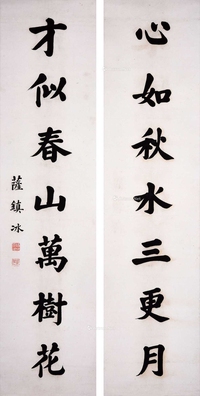 心如秋水三更月
才似春山萬樹花
薩鎮冰